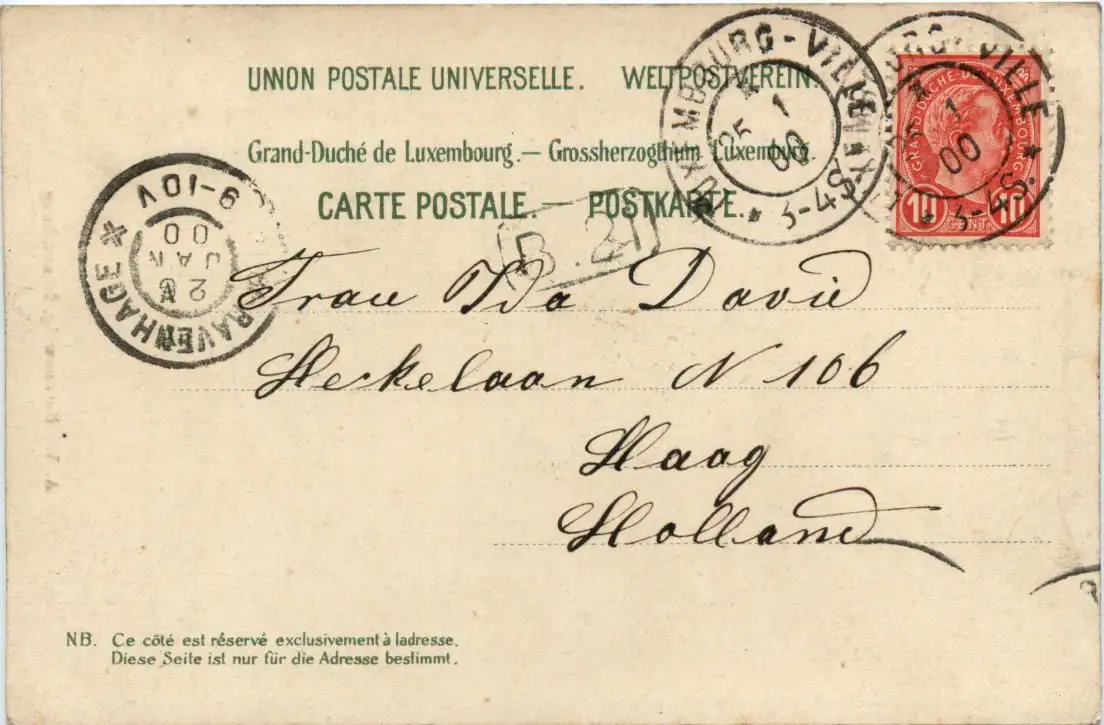 UNION POSTALE UNIVERSELLE. WELTPOSTVEREIN.
Grand-Duché de Luxembourg.— Grossherzogthum Luxemburg.
CARTE POSTALE. — POSTKARTE.
LUXEMBOURG-VILLE
25 1 00
3-4S
LUXEMBOURG-VILLE
25 1 00
3-4S
GRAND-DUCHÉ-DE-LUXEMBOURG
10 CENT. 10
'S GRAVENHAGE
9-10V
00
JAN
26
B.21
Frau Ida David
Heckelaan N 106
Haag
Holland
NB. Ce côté est réservé exclusivement à ladresse.
Diese Seite ist nur für die Adresse bestimmt.